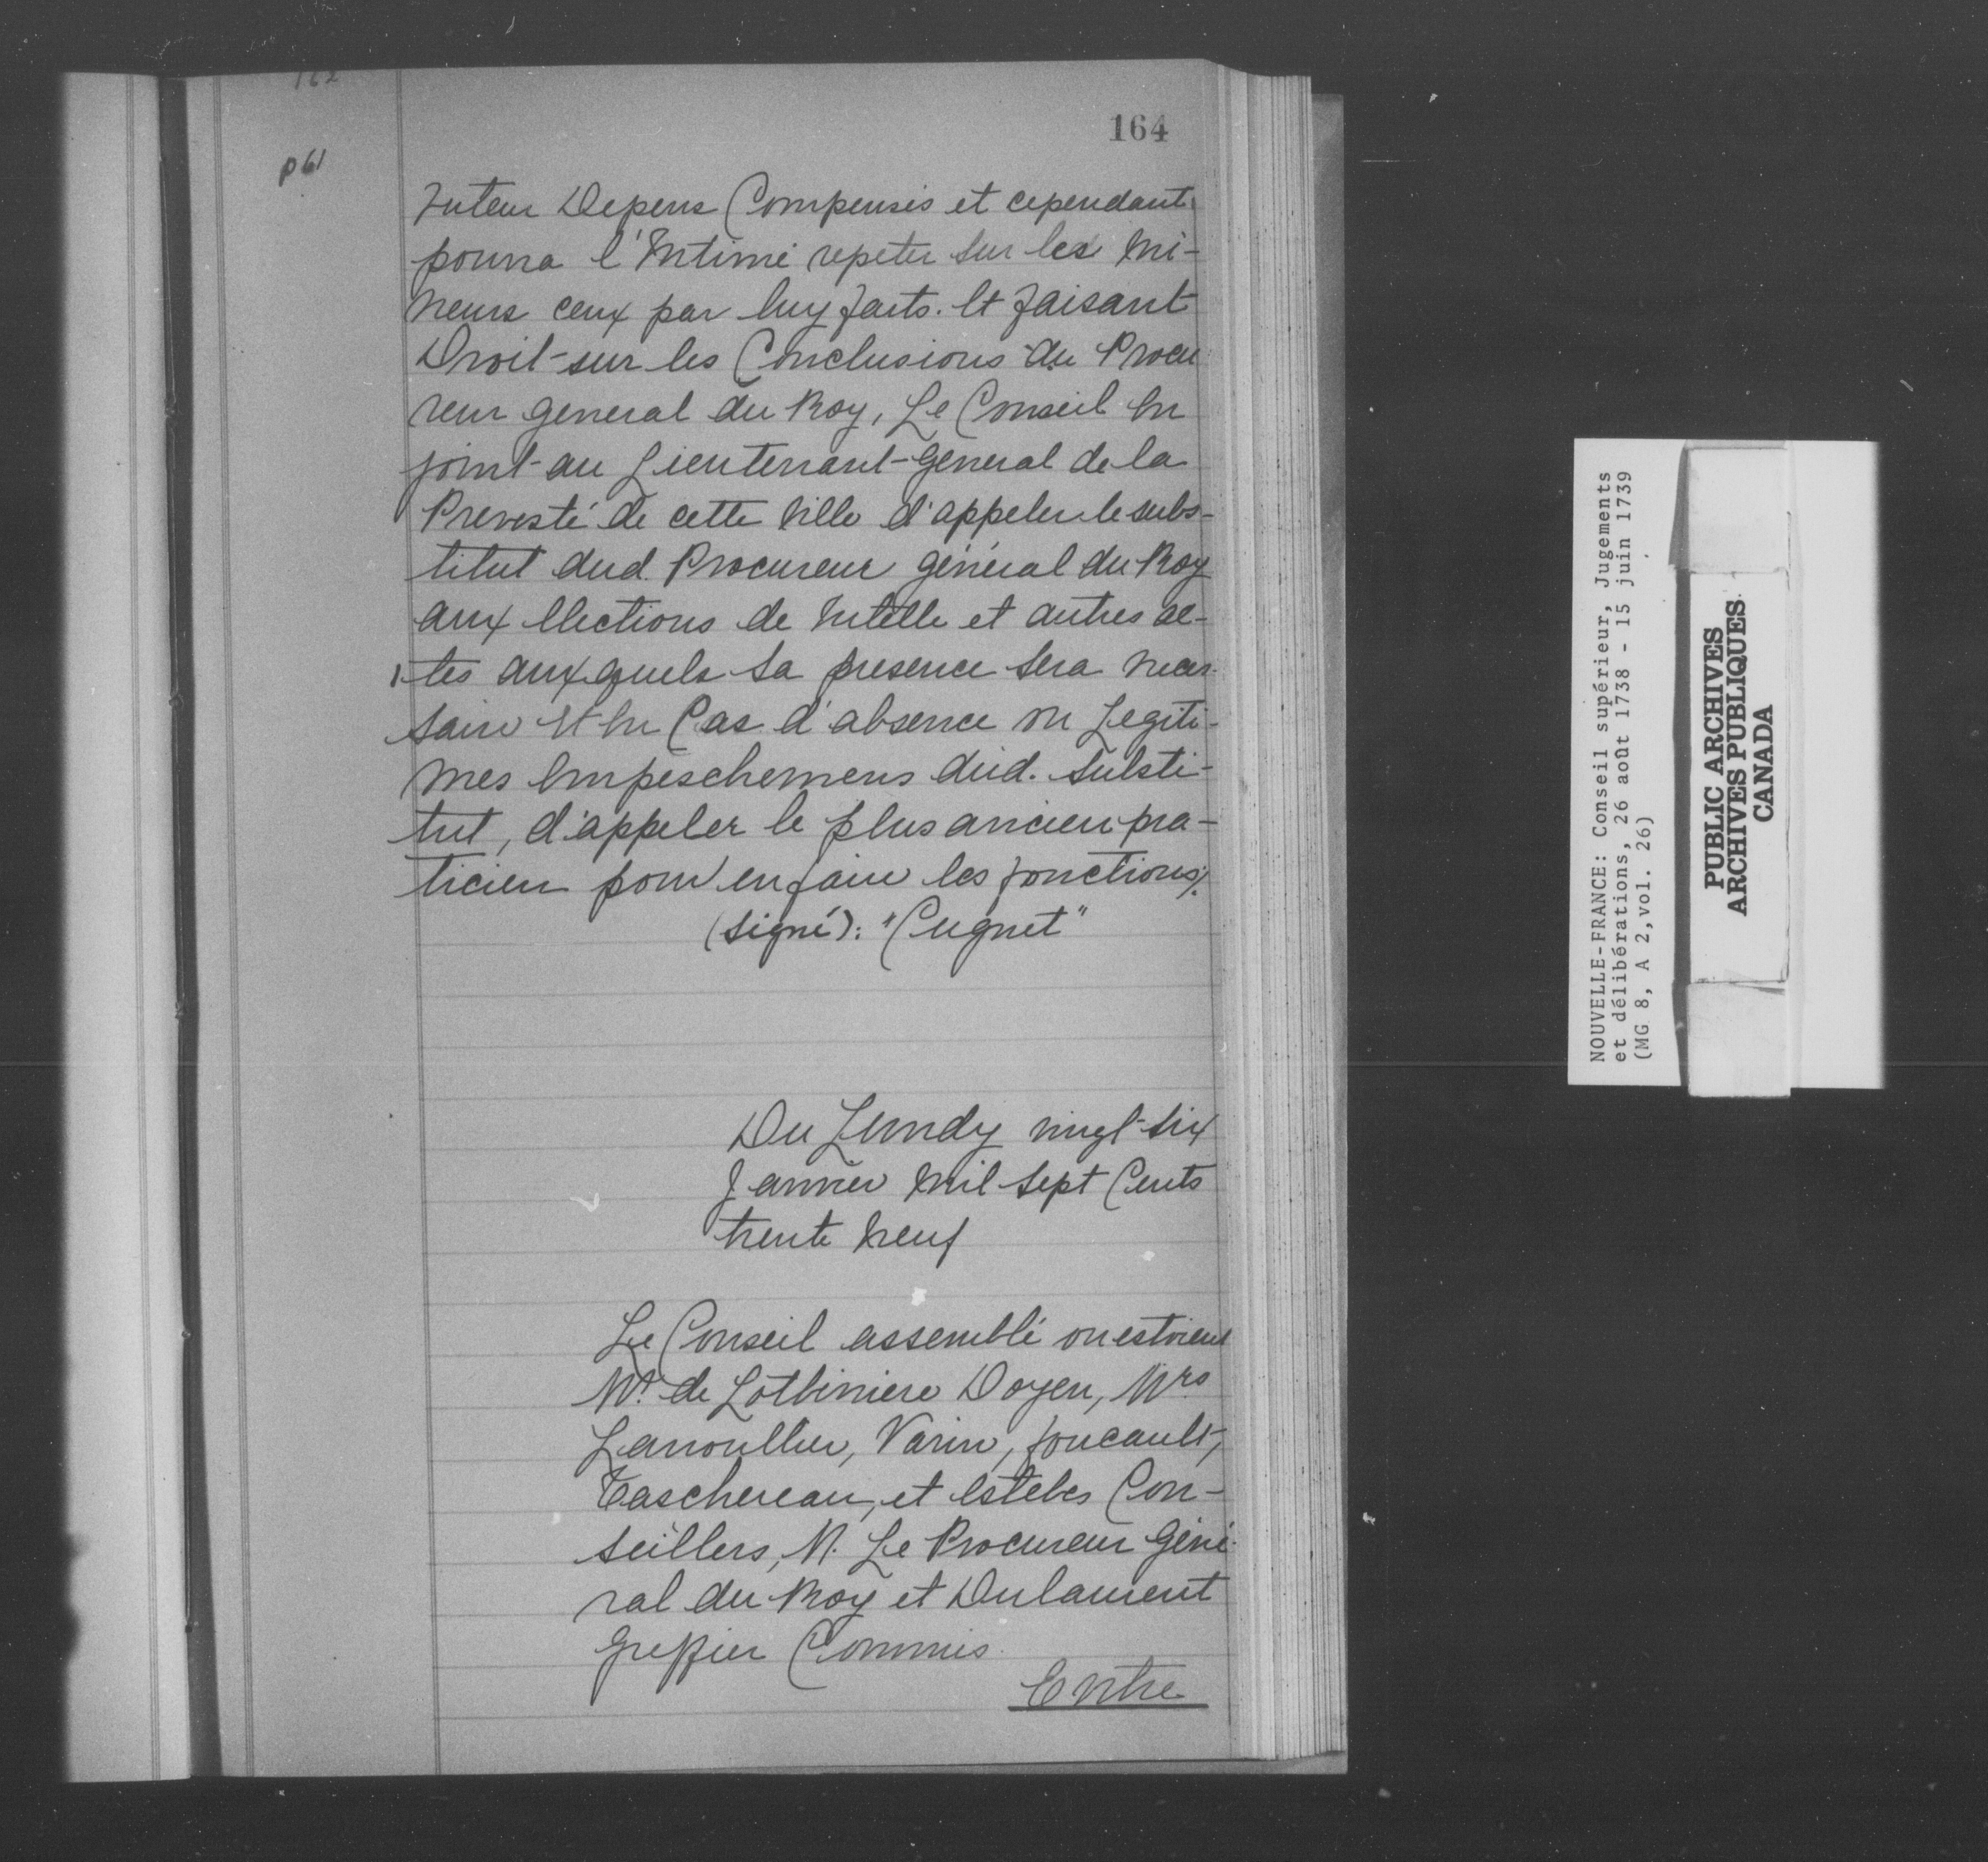 162
164
p 61
tuteur Depens Compensés et cependant
pourra l'Intimé repeter sur les Mi-
neurs ceux par luy faits. Et faisant
Droit sur les Conclusions du Procu
reur general du Roy, Le Conseil En
joint au Lieutenant-General de la
Prevosté de cette Ville d'appeler le subs-
titut dud. Procureur général du Roy
aux Elections de tutelle et autres ac-
tes auxquels sa presence sera neces-
saire Et En Cas d'absence ou Legiti-
mes Empeschemens dud. substi-
tut, d'appeler le plus ancien pra-
ticien pour en faire les fonctions ./.
(signé): "Cugnet"
Du Lundy vingt-six
Janvier Mil sept Cents
trente Neuf
Le Conseil assemblé ou estoient
Mr. de Lotbiniere Doyen, Mrs
Lanoullier, Varin, foucault,
Taschereau, et Estebes Con-
seillers, M. Le Procureur Géné-
ral du Roy et Dulaurent
greffier Commis.
Entre
NOUVELLE-FRANCE: Conseil supérieur, Jugements
et délibérations, 26 août 1738 - 15 juin 1739
(MG 8, A 2,vol. 26)
PUBLIC ARCHIVES
ARCHIVES PUBLIQUES
CANADA